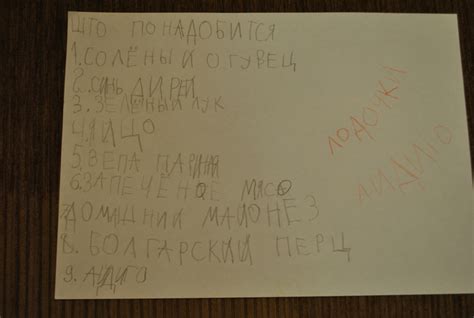 ШТО ПОНАДОБИТСЯ
1.СОЛЁНЫЙ ОГУВЕЦ
2.СИНЬ ДИРЕЙ
3.ЗЕЛЁНЫЙ ЛУК
4.ЯЙЦО
5.ЗЕПА
6.ЗАПЕЧЁНОЕ МЯСО
7ДОМАШНИЙ МАЙОНЕЗ
8.БОЛГАРСКИЙ ПЕРЦ
9.АИДИГО
ЛОДОЧКА
АИДИГО